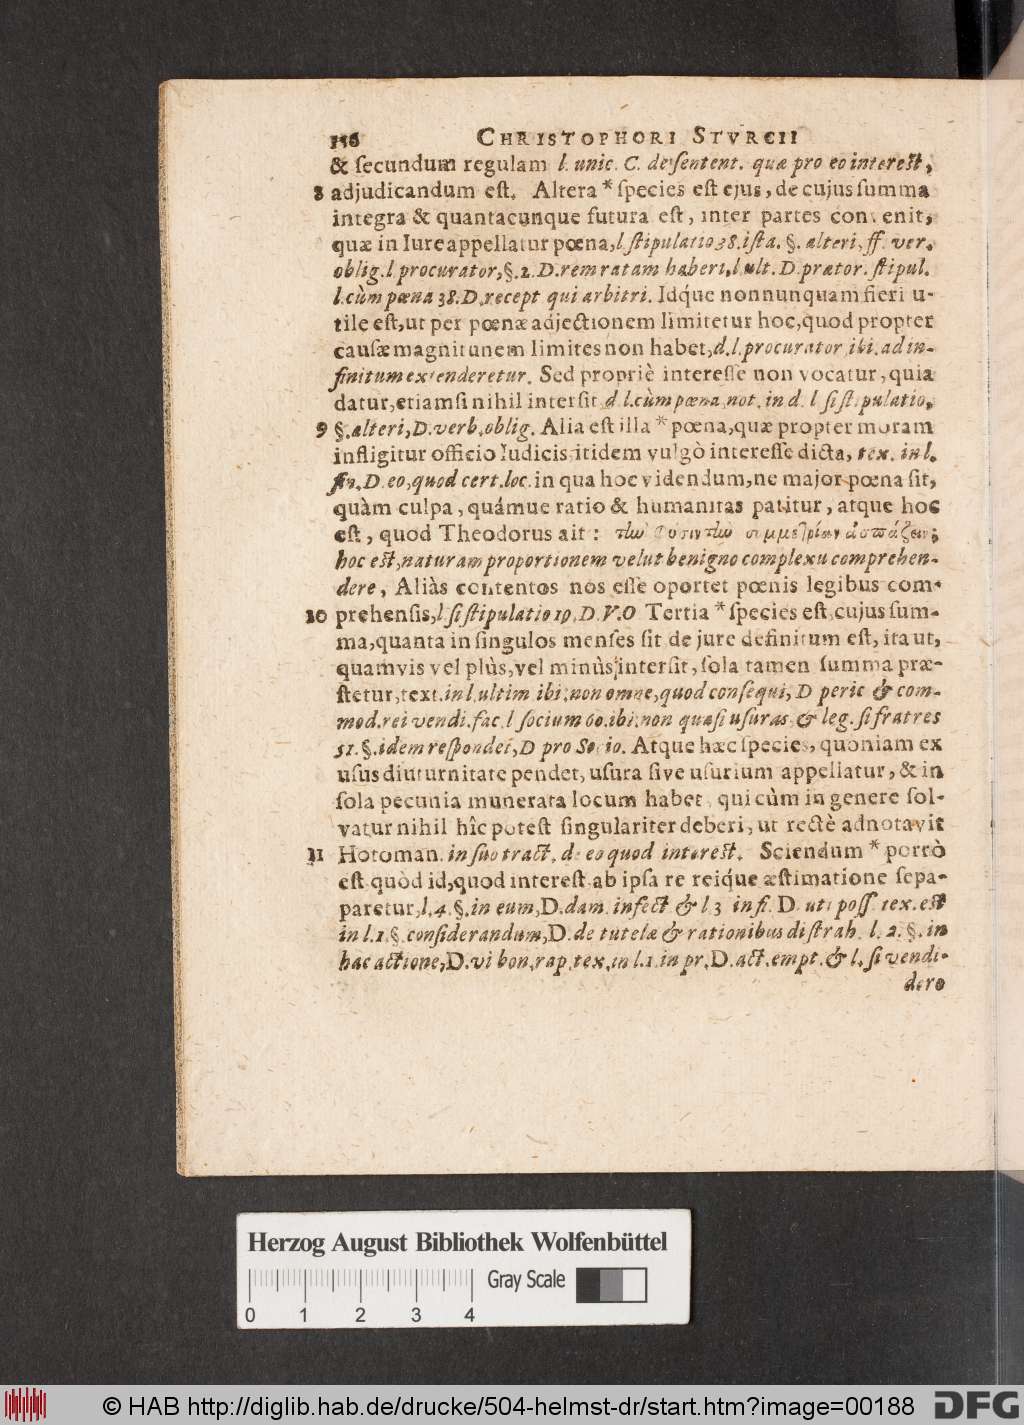 156 CHRISTOPHORI STVRCII
& secundum regulam l. unic. C. de sentent. quæ pro eo interest,
8 adjudicandum est. Altera * species est ejus, de cujus summa
integra & quantacunque futura est, inter partes convenit,
quæ in Iure appellatur pœna, l. stipulatio 38. ista. §. alteri, ff. ver.
oblig. l. procurator, §. 2. D. rem ratam haberi, l. ult. D. prætor. stipul.
l. cùm pœna 38. D. recept qui arbitri. Idque nonnunquam fieri u-
tile est, ut per pœnæ adjectionem limitetur hoc, quod propter
causæ magnitunem limites non habet, d. l. procurator ibi. ad in-
finitum extenderetur. Sed propriè interesse non vocatur, quia
datur, etiamsi nihil intersit d. l. cùm pœna, not. in d. l si stipulatio,
9 §. alteri, D. verb. oblig. Alia est illa * pœna, quæ propter moram
infligitur officio Iudicis itidem vulgò interesse dicta, tex. in l.
fin. D. eo, quod cert. loc. in qua hoc videndum, ne major pœna sit,
quàm culpa, quámue ratio & humanitas patitur, atque hoc
est, quod Theodorus ait: τὴν φύσιν τὴν συμμετρίαν ἀσπάζειν;
hoc est, naturam proportionem velut benigno complexu comprehen-
dere, Aliàs contentos nos esse oportet pœnis legibus com-
10 prehensis, l. si stipulatio 19, D. V. O Tertia * species est, cujus sum-
ma, quanta in singulos menses sit de jure definitum est, ita ut,
quamvis vel plùs, vel minùs intersit, sola tamen summa præ-
stetur, text. in l. ultim ibi: non omne, quod consequi, D peric & com-
mod. rei vendi. fac. l socium 60. ibi: non quasi usuras & leg. si fratres
51. §. idem respondet, D pro Socio. Atque hæc species, quoniam ex
usus diuturnitate pendet, usura sive usurium appellatur, & in
sola pecunia munerata locum habet, qui cùm in genere sol-
vatur nihil hîc potest singulariter deberi, ut rectè adnotavit
11 Hotoman. in suo tract. de eo quod interest. Sciendum * porrò
est quòd id, quod interest ab ipsa re reique æstimatione sepa-
paretur, l. 4. §. in eum, D. dam. infect & l. 3 in fi. D. uti poss. tex. est
in l. 1. §. considerandum, D. de tutelæ & rationibus distrah. l. 2. §. in
hac actione, D. vi bon. rap. tex. in l. 1. in pr. D. act. empt. & l. si vendi-
dero
Herzog August Bibliothek Wolfenbüttel
Gray Scale
0 1 2 3 4
© HAB http://diglib.hab.de/drucke/504-helmst-dr/start.htm?image=00188
DFG